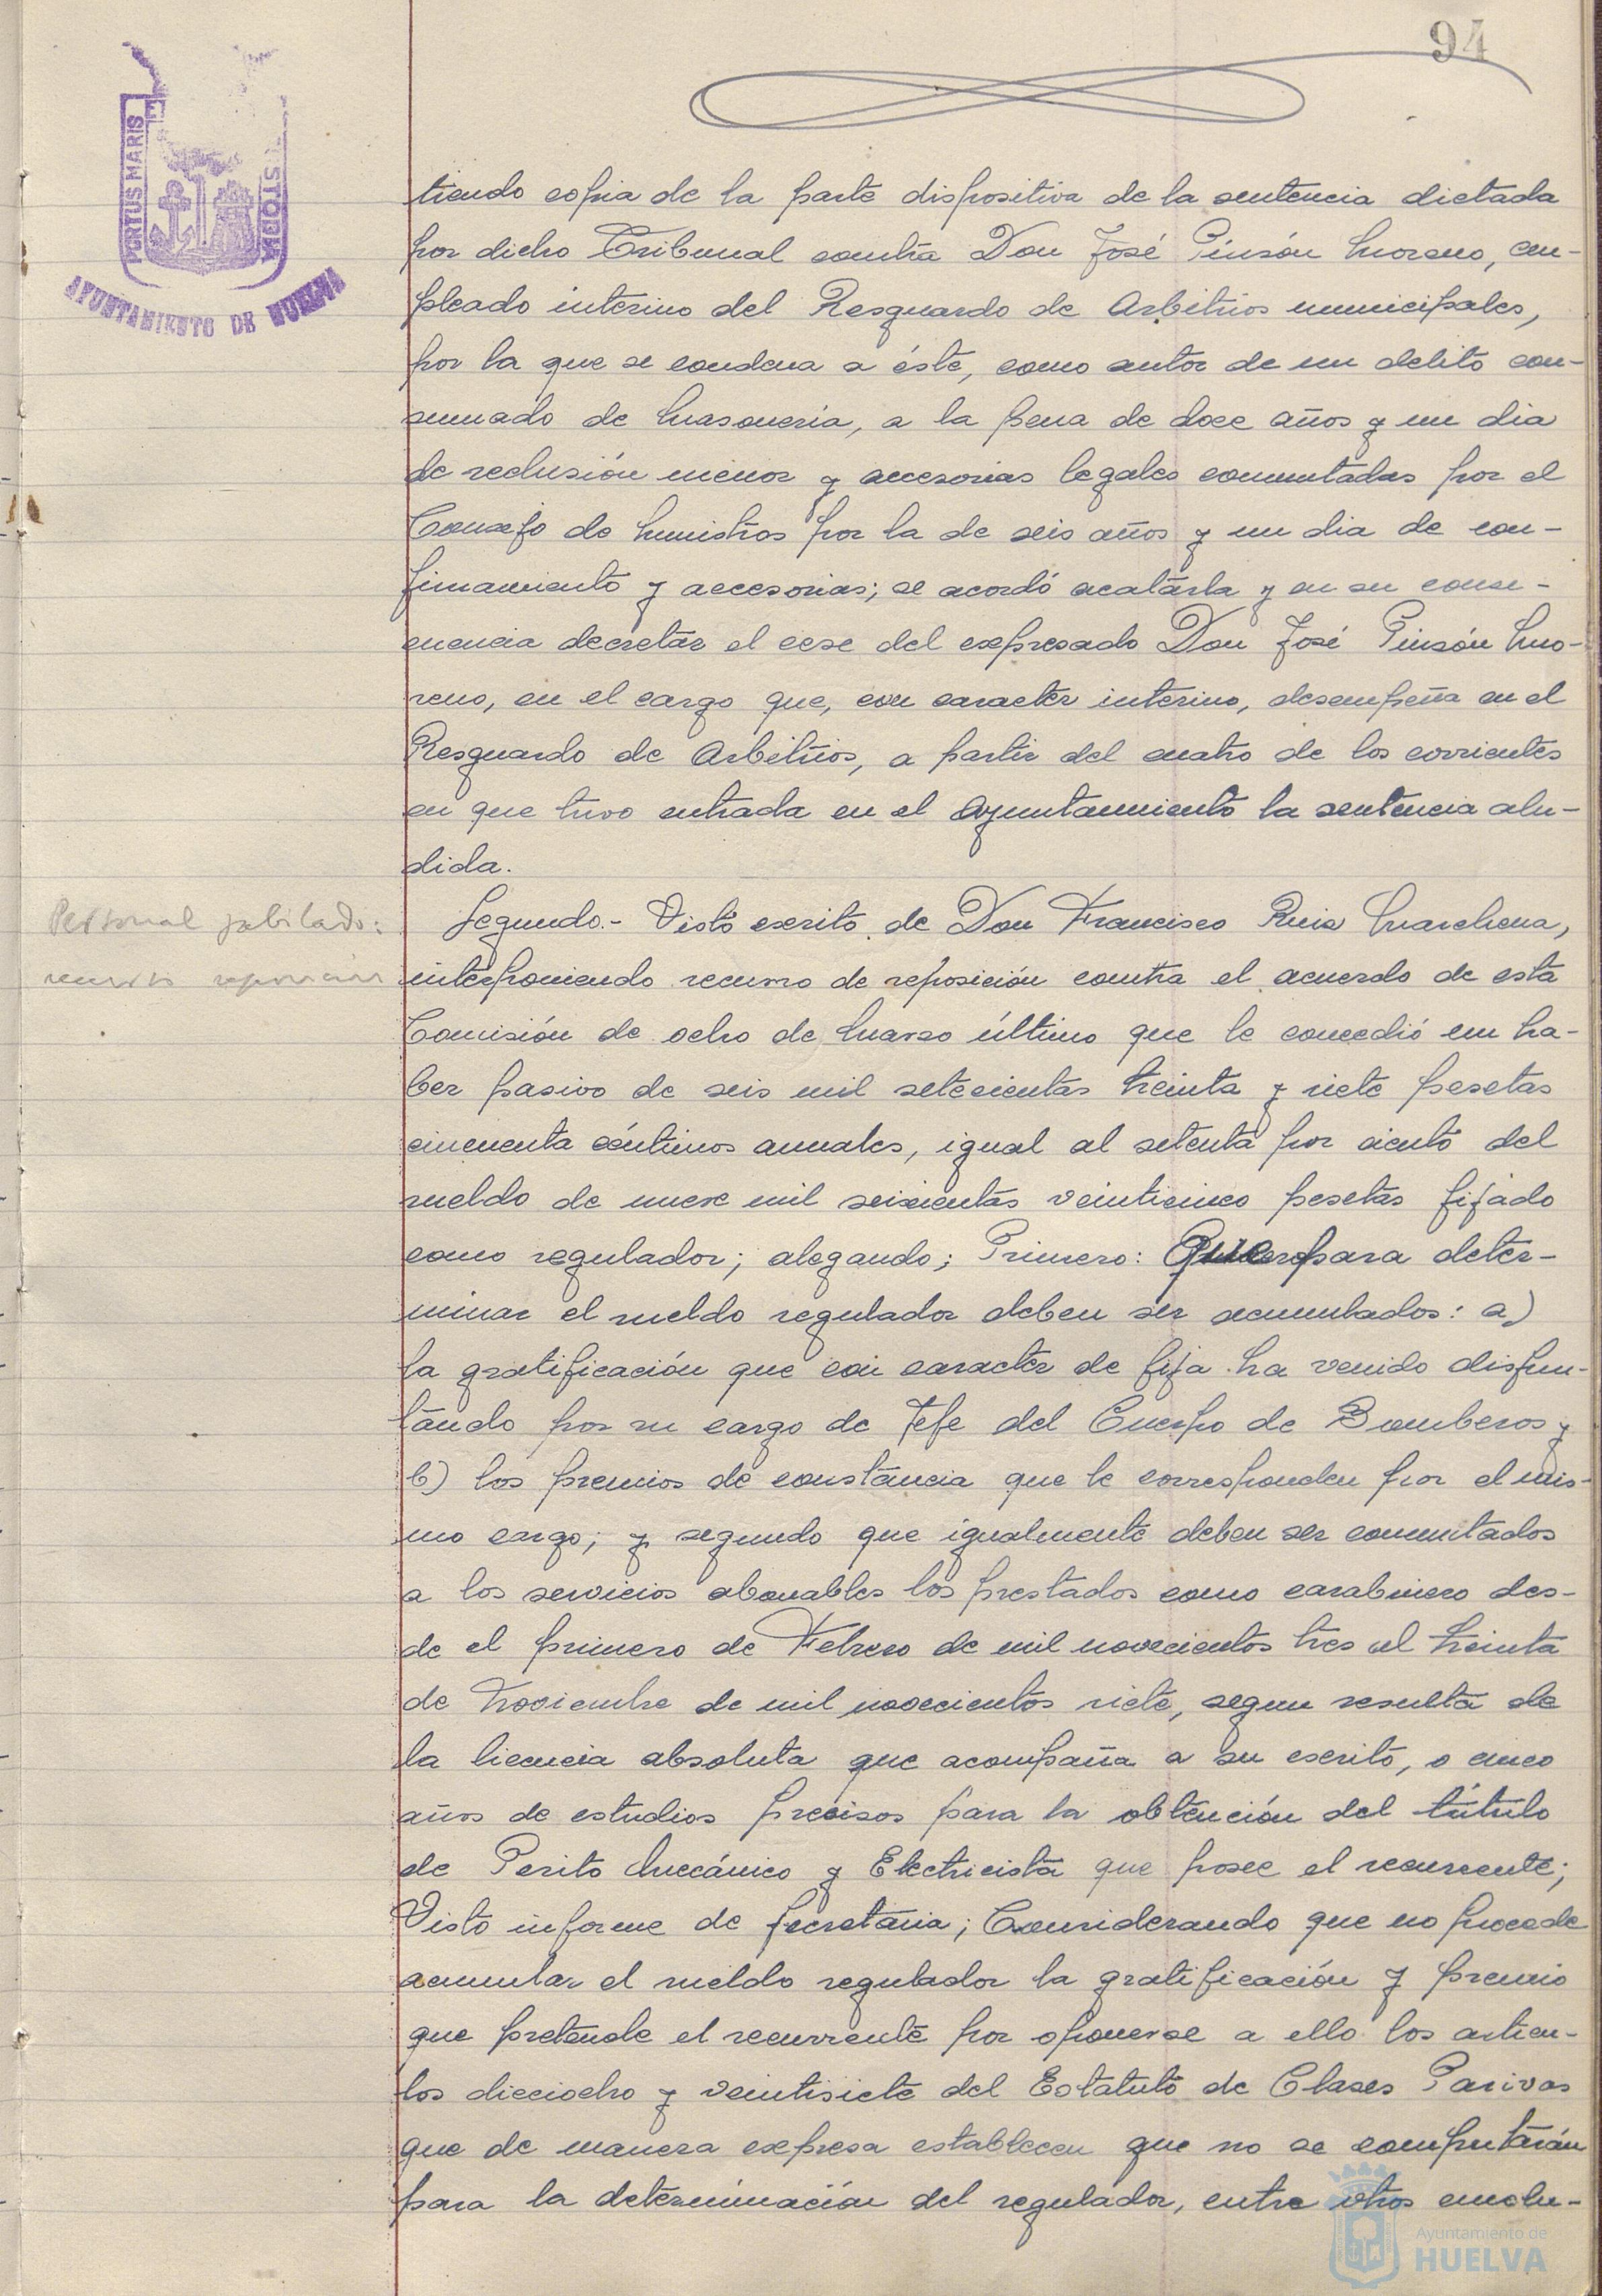 94
PORTUS MARIS ET
STODIA
AYUNTAMIENTO DE HUELVA
tiendo copia de la parte dispositiva de la sentencia dictada
por dicho Tribunal contra Don José Pinzón Moreno, em-
pleado interino del Resguardo de Arbitrios municipales,
por la que se condena a éste, como autor de un delito con-
sumado de Masonería, a la pena de doce años y un dia
de reclusión menor y accesorias legales conmutadas por el
Consejo de Ministros por la de seis años y un dia de con-
finamiento y accesorias; se acordó acatarla y en su conse-
cuencia decretar el cese del expresado Don José Pinzón Mo-
reno, en el cargo que, con caracter interino, desempeña en el
Resguardo de Arbitrios, a partir del cuatro de los corrientes
en que tuvo entrada en el Ayuntamiento la sentencia alu-
dida.
Personal jubilado:
recurso reposición
Segundo.- Visto escrito de Don Francisco Ruiz Marchena,
interponiendo recurso de reposición contra el acuerdo de esta
Comisión de ocho de Marzo último que le concedió un ha-
ber pasivo de seis mil setecientas treinta y siete pesetas
cincuenta céntimos anuales, igual al setenta por ciento del
sueldo de nueve mil seiscientas veinticinco pesetas fijado
como regulador; alegando; Primero: Que para deter-
minar el sueldo regulador deben ser acumulados: a)
la gratificación que con caracter de fija ha venido disfru-
tando por su cargo de Jefe del Cuerpo de Bomberos y
b) los premios de constancia que le corresponden por el mis-
mo cargo; y segundo que igualmente deben ser conmutados
a los servicios abonables los prestados como carabinero des-
de el primero de Febrero de mil novecientos tres al treinta
de Noviembre de mil novecientos siete, segun resulta de
la licencia absoluta que acompaña a su escrito, o cinco
años de estudios precisos para la obtención del título
de Perito Mecánico y Electricista que posee el recurrente;
Visto informe de Secretaria; Considerando que no procede
acumular el sueldo regulador la gratificación y premio
que pretende el recurrente por oponerse a ello los articu-
los dieciocho y veintisiete del Estatuto de Clases Pasivas
que de manera expresa establecen que no se computarán
para la determinación del regulador, entre otros emolu-
Ayuntamiento de
HUELVA